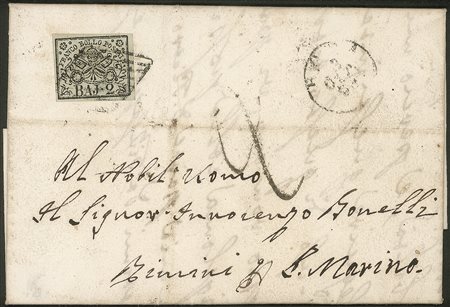 FRANCO BOLLO POSTALE
BAJ 2
2
Al Nobil Uomo
Il Signor Innocenzo Bonelli
Rimini p S. Marino